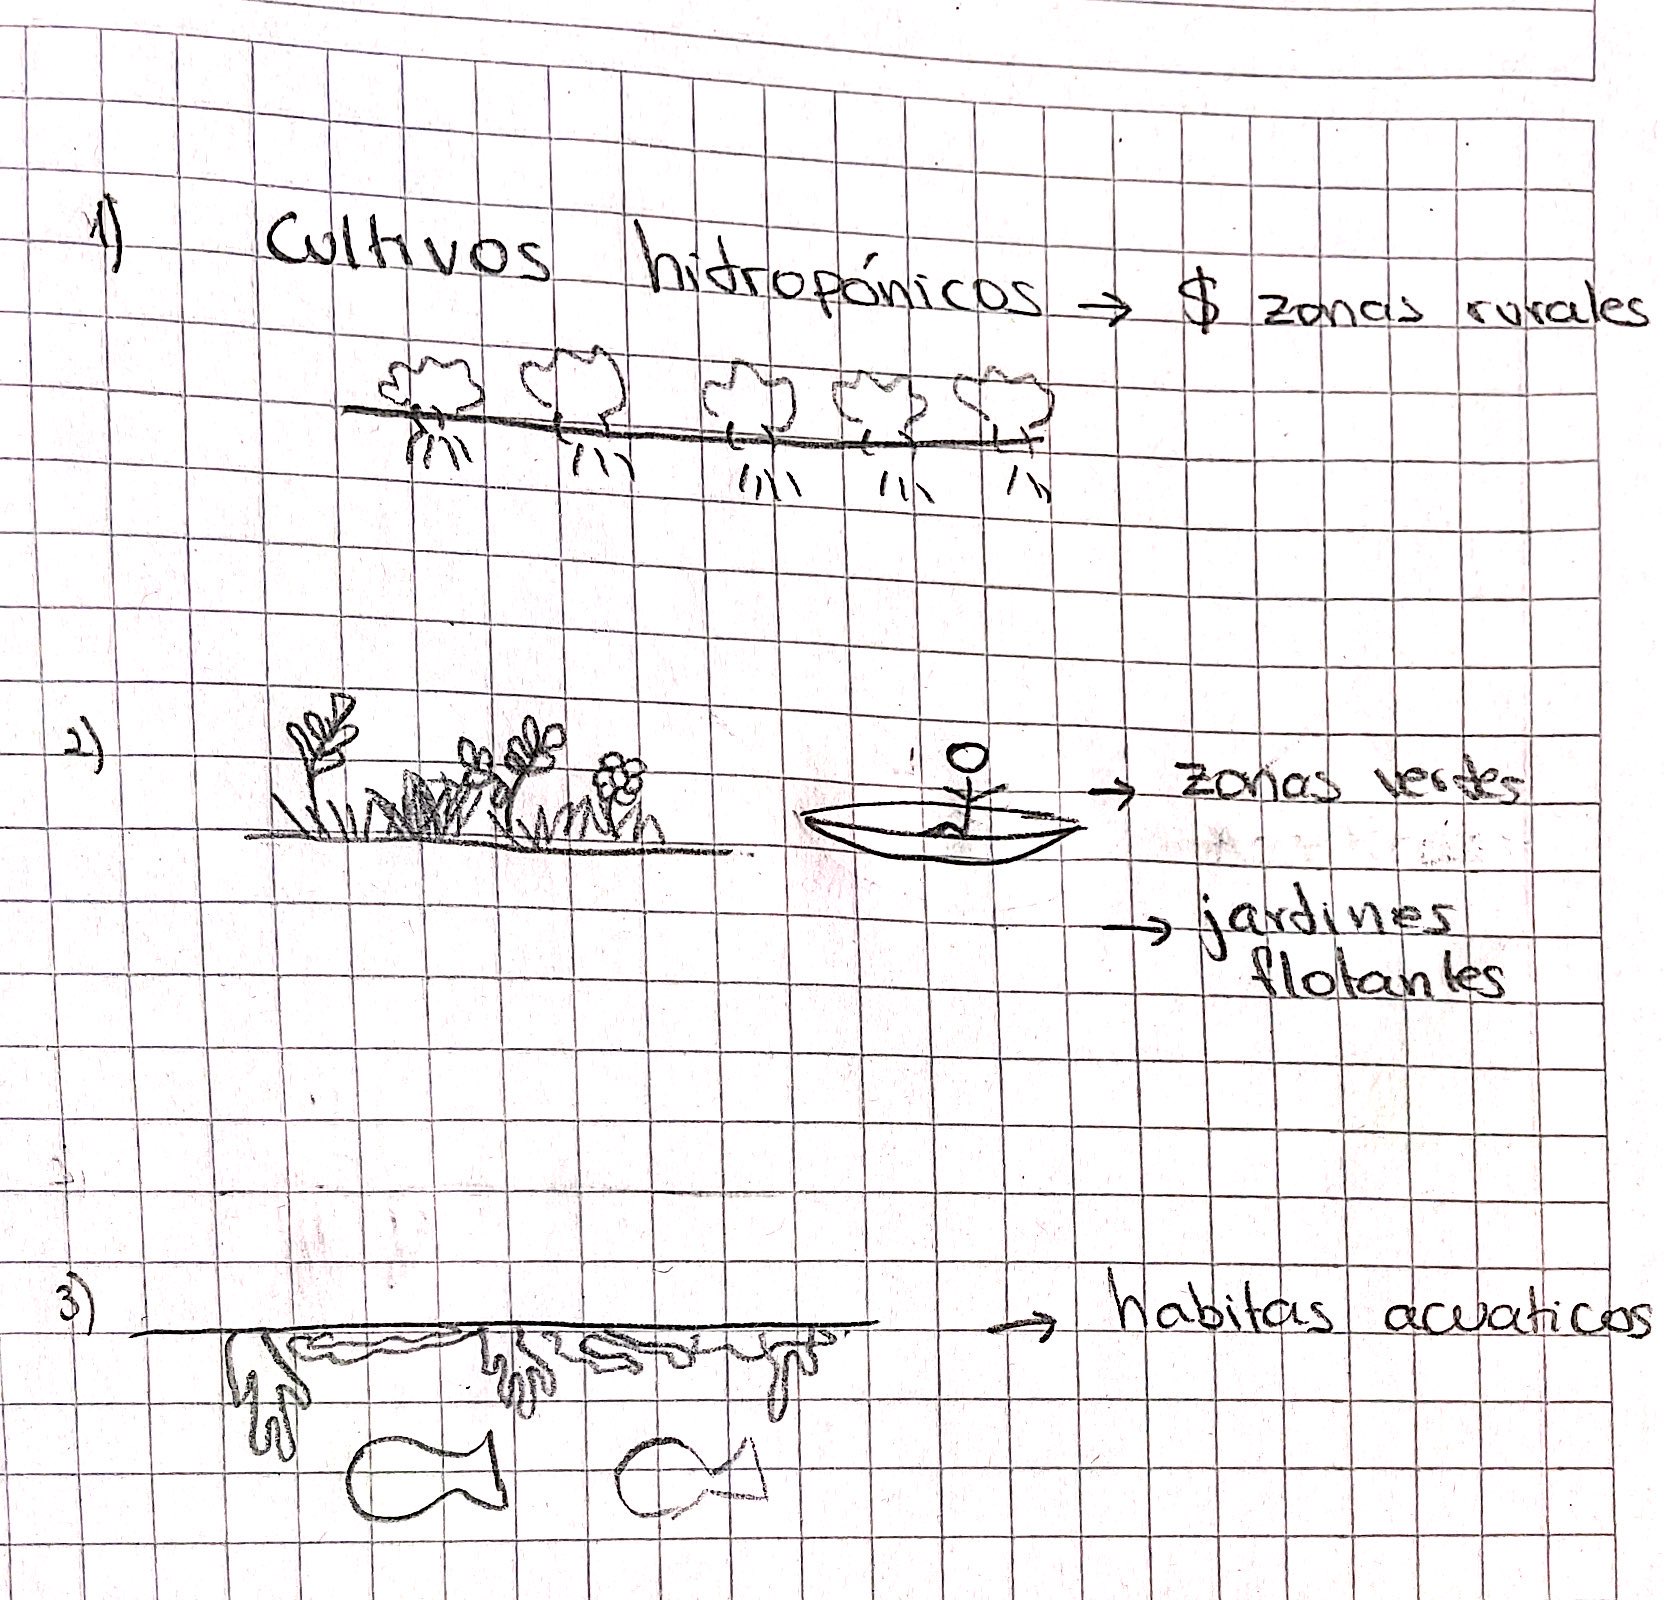 1) Cultivos hidropónicos → $ zonas rurales
2) → zonas verdes
→ jardines
flotantes
3) → habitas acuaticos